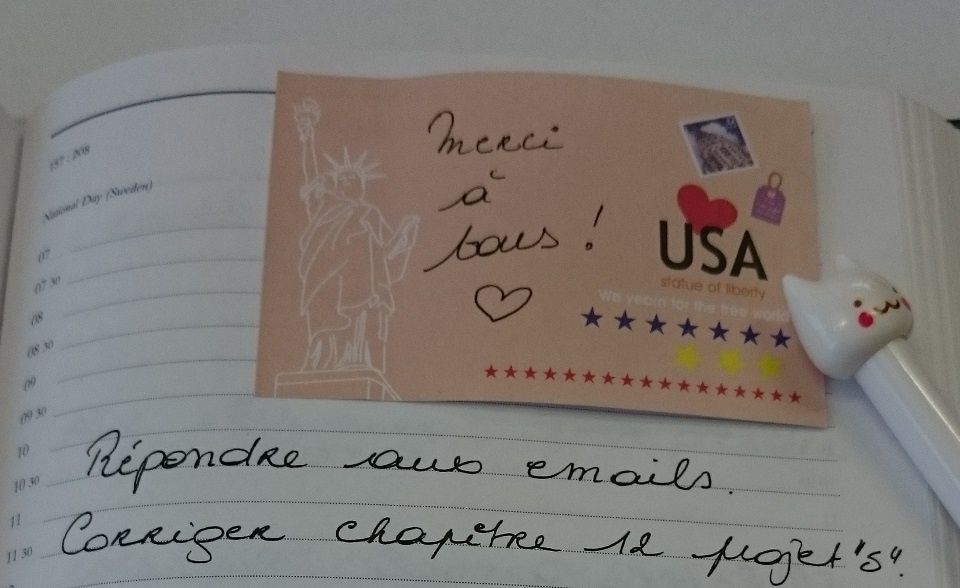 157 : 208
National Day (Sweden)
07
07 30
08
08 30
09
09 30
10
10 30
11
11 30
Merci
à
tous !
USA
statue of liberty
We yearn for the free world
Répondre emails.
Corriger chapître 12 projet "S".